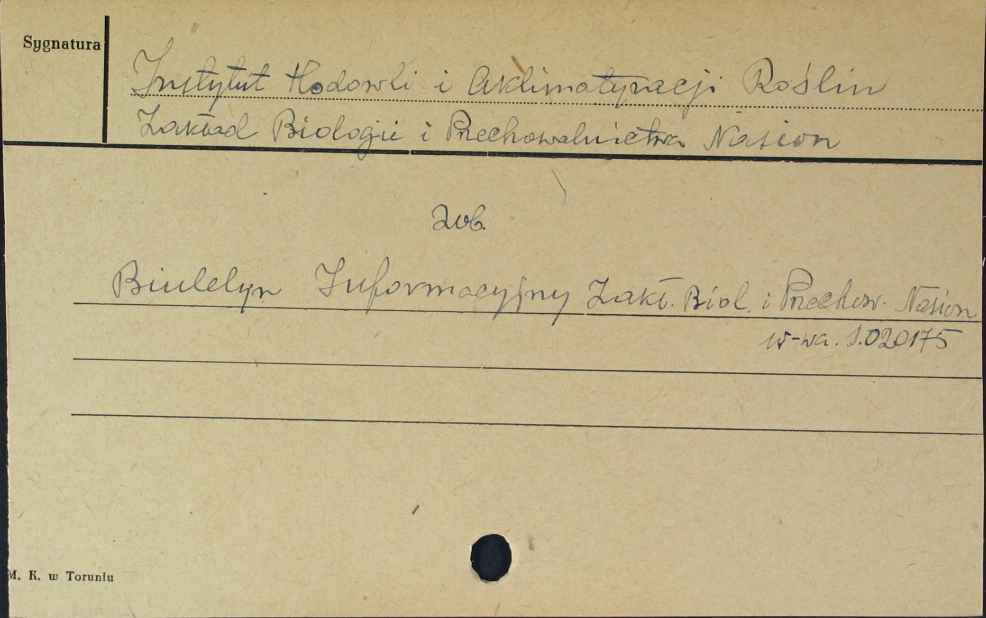 Sygnatura
Instytut Hodowli i Aklimatyzacji Roślin
Zakład Biologii i Przechowalnictwa Nasion
zob.
Biuletyn Informacyjny Zakł. Biol. i Przechow. Nasion
W-wa. S.020175
M. K. w Toruniu